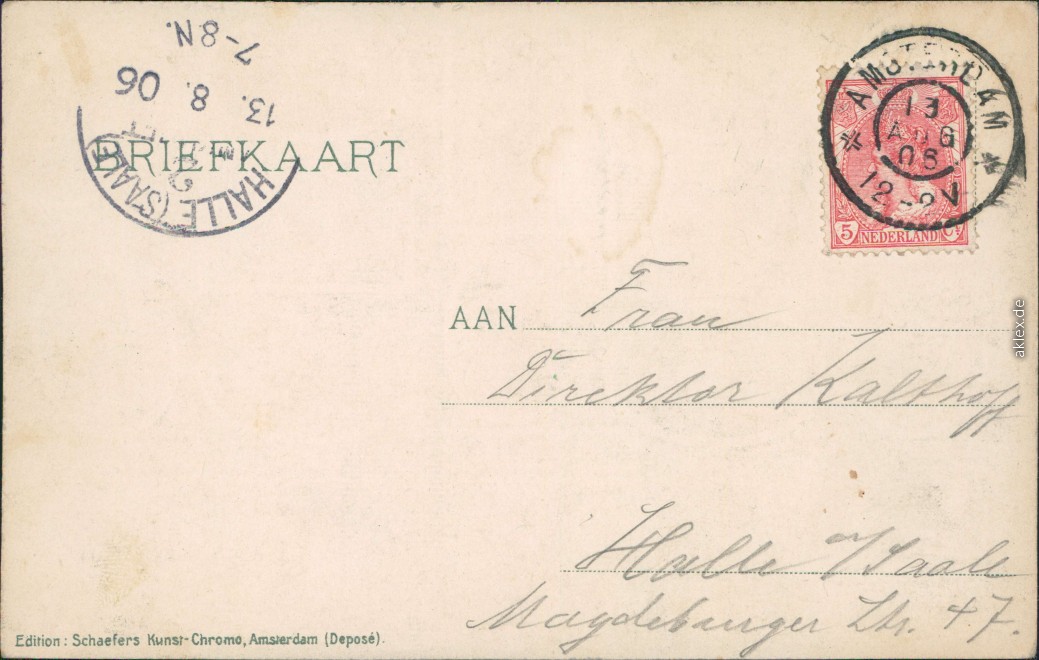 7-8N.
13. 8. 06
HALLE (SAALE)
BRIEFKAART
AMSTERDAM
13
AUG
06
12-2V
5 NEDERLAND Ct
AAN Frau
Direktor Kalthoff
Halle a/Saale
Magdeburger Str. 47.
Edition: Schaefers Kunst-Chromo, Amsterdam (Deposé).
aklex.de